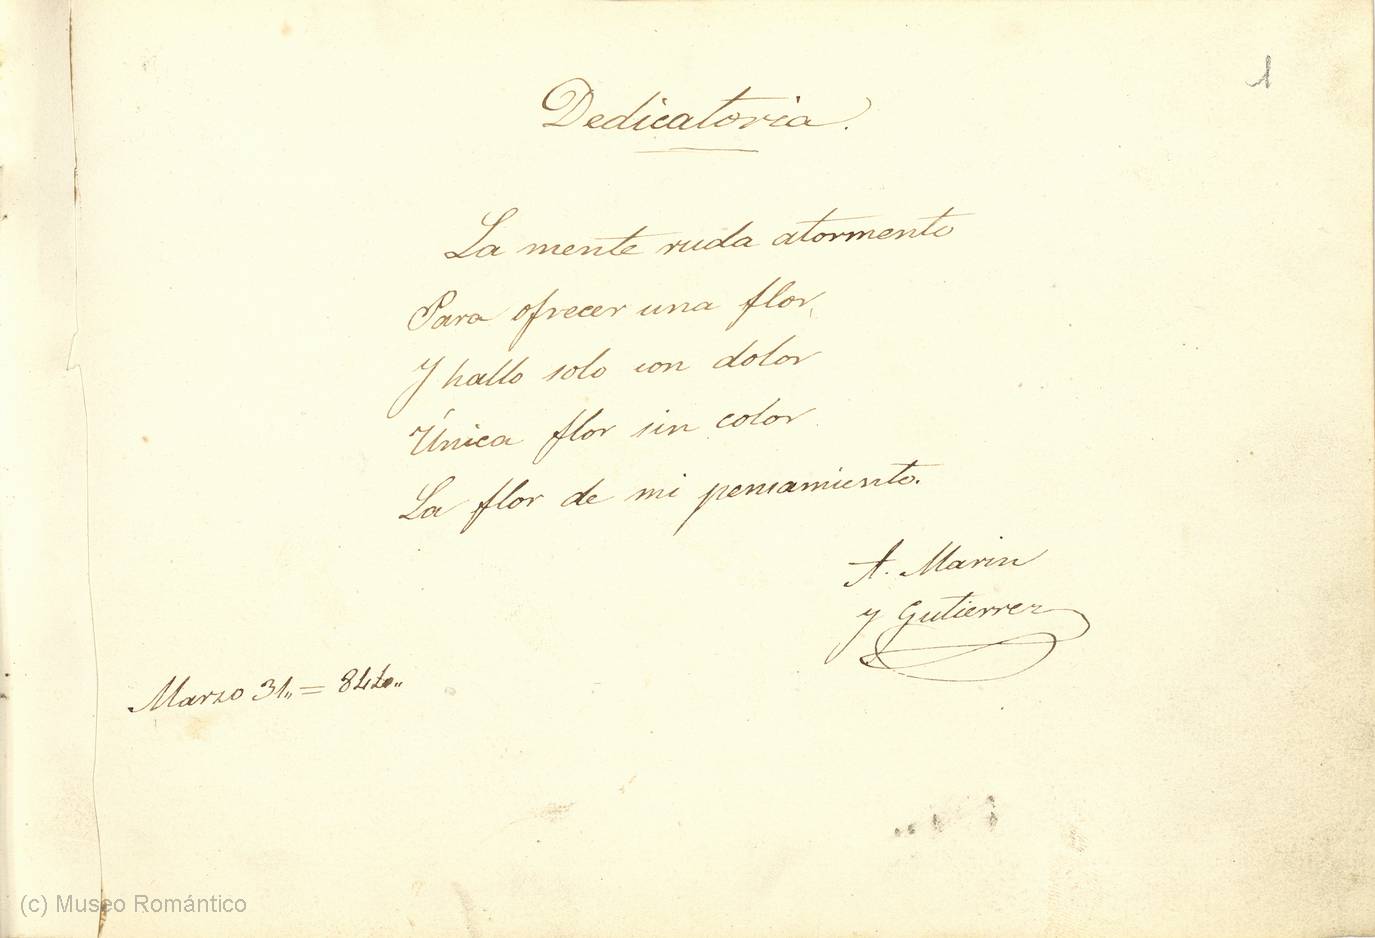 1
Dedicatoria.
La mente ruda atormento
Para ofrecer una flor,
Y hallo solo con dolor
Única flor sin color
La flor de mi pensamiento.
A. Marin
y Gutierrez
Marzo 31,, = 844,,
(c) Museo Romántico